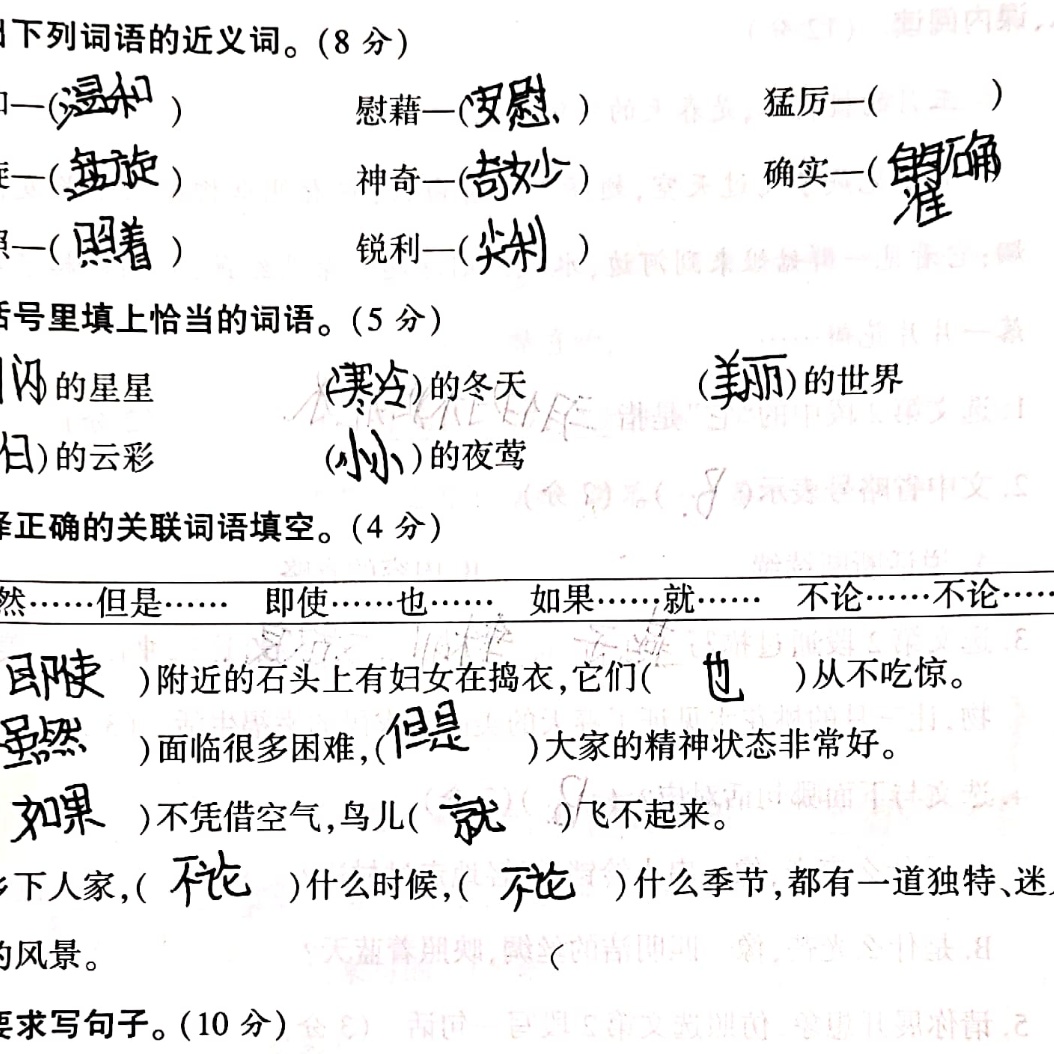 下列词语的近义词。(8 分)
和—(温和) 慰藉—(安慰) 猛厉—( )
旋—(盘旋) 神奇—(奇妙) 确实—(的确
准
照—(照着) 锐利—(尖利)
括号里填上恰当的词语。(5 分)
闪的星星 (寒冷)的冬天 (美丽)的世界
白)的云彩 (小小)的夜莺
择正确的关联词语填空。(4 分)
然……但是…… 即使……也…… 如果……就…… 不论……不论……
即使)附近的石头上有妇女在捣衣,它们( 也 )从不吃惊。
虽然)面临很多困难,(但是)大家的精神状态非常好。
如果)不凭借空气,鸟儿( 就 )飞不起来。
乡下人家,( 不论 )什么时候,( 不论 )什么季节,都有一道独特、迷人
的风景。 (
要求写句子。(10 分)